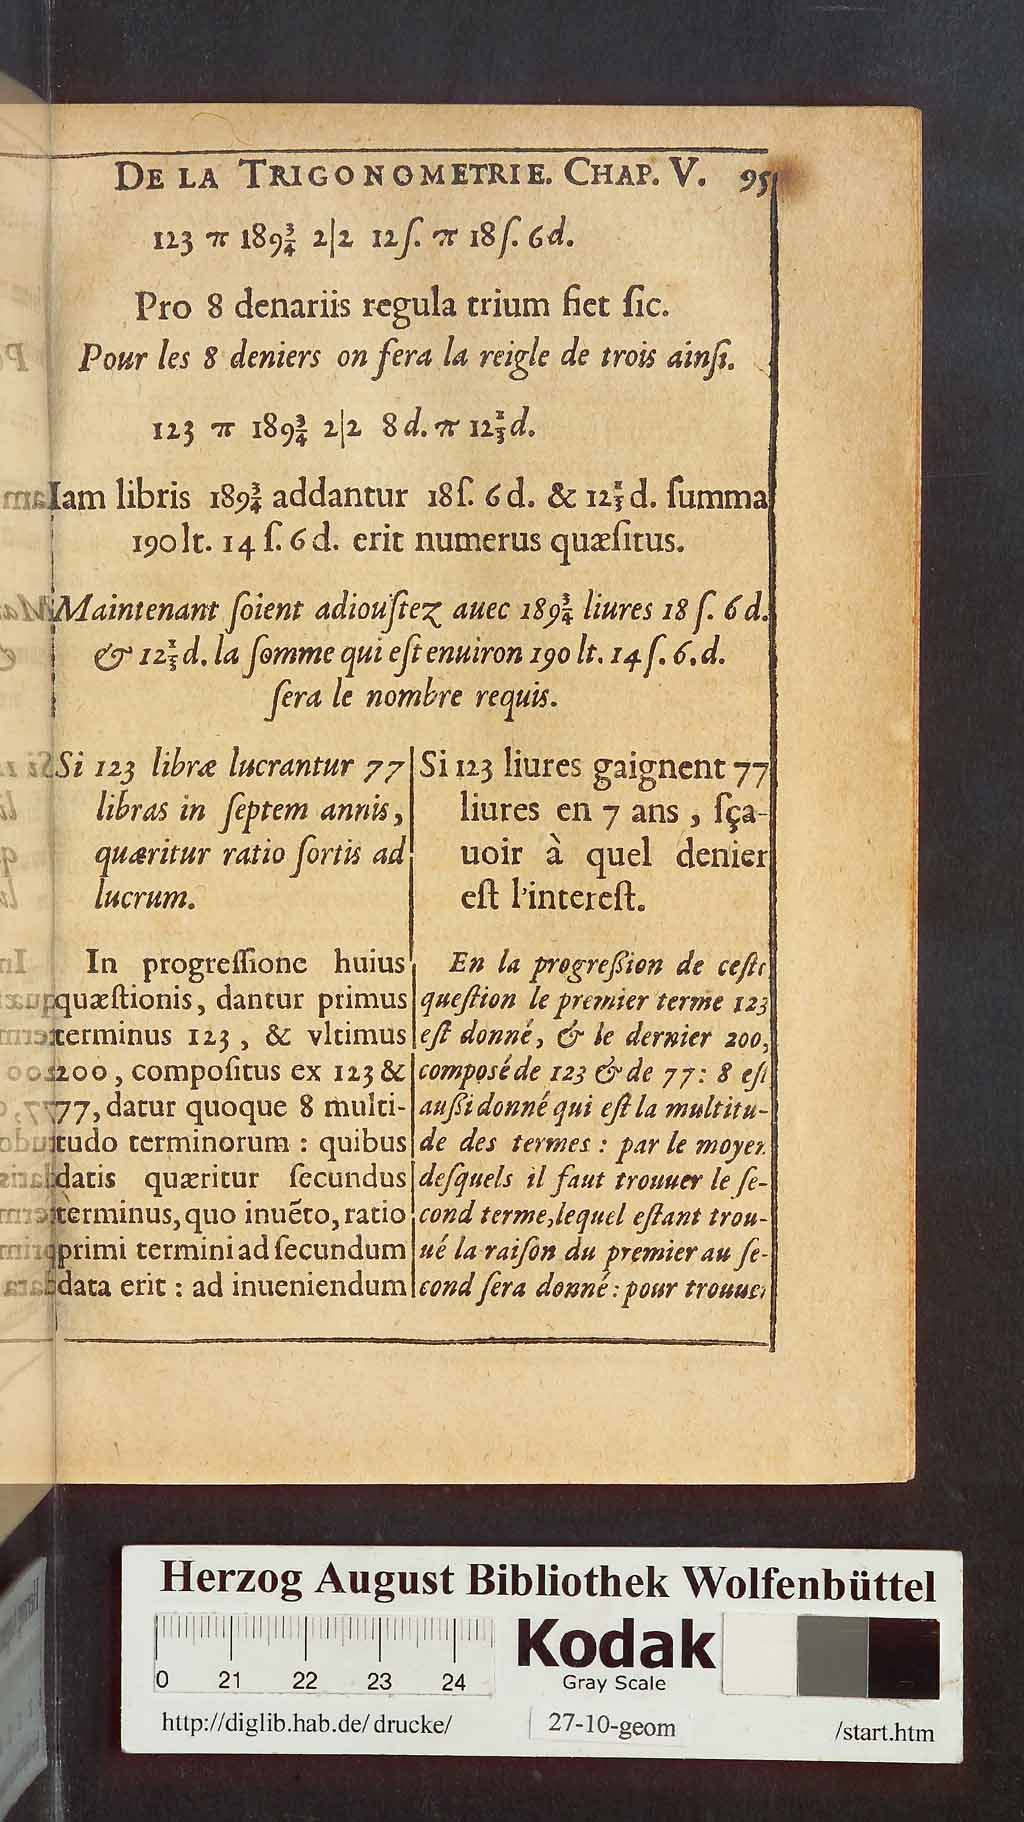 DE LA TRIGONOMETRIE. CHAP. V. 95
123 π 189¾ 2|2 12ſ. π 18ſ. 6d.
Pro 8 denariis regula trium fiet ſic.
Pour les 8 deniers on fera la reigle de trois ainſi.
123 π 189¾ 2|2 8d. π 12⅓d.
Iam libris 189¾ addantur 18ſ. 6d. & 12⅓d. ſumma
190lt. 14ſ. 6d. erit numerus quæſitus.
Maintenant ſoient adiouſtez auec 189¾ liures 18ſ. 6d.
& 12⅓d. la ſomme qui eſt enuiron 190lt. 14ſ. 6.d.
ſera le nombre requis.
Si 123 libræ lucrantur 77
libras in ſeptem annis,
quæritur ratio ſortis ad
lucrum.
Si 123 liures gaignent 77
liures en 7 ans, ſça-
uoir à quel denier
eſt l'intereſt.
In progreſſione huius
quæſtionis, dantur primus
terminus 123, & vltimus
200, compoſitus ex 123 &
77, datur quoque 8 multi-
tudo terminorum : quibus
datis quæritur ſecundus
terminus, quo inuẽto, ratio
primi termini ad ſecundum
data erit : ad inueniendum
En la progreßion de ceſte
queſtion le premier terme 123
eſt donné, & le dernier 200,
composé de 123 & de 77: 8 eſt
außi donné qui eſt la multitu-
de des termes : par le moyen
deſquels il faut trouuer le ſe-
cond terme, lequel eſtant trou-
ué la raiſon du premier au ſe-
cond ſera donné : pour trouuer
Herzog August Bibliothek Wolfenbüttel
Kodak
Gray Scale
0 21 22 23 24
http://diglib.hab.de/drucke/ 27-10-geom /start.htm